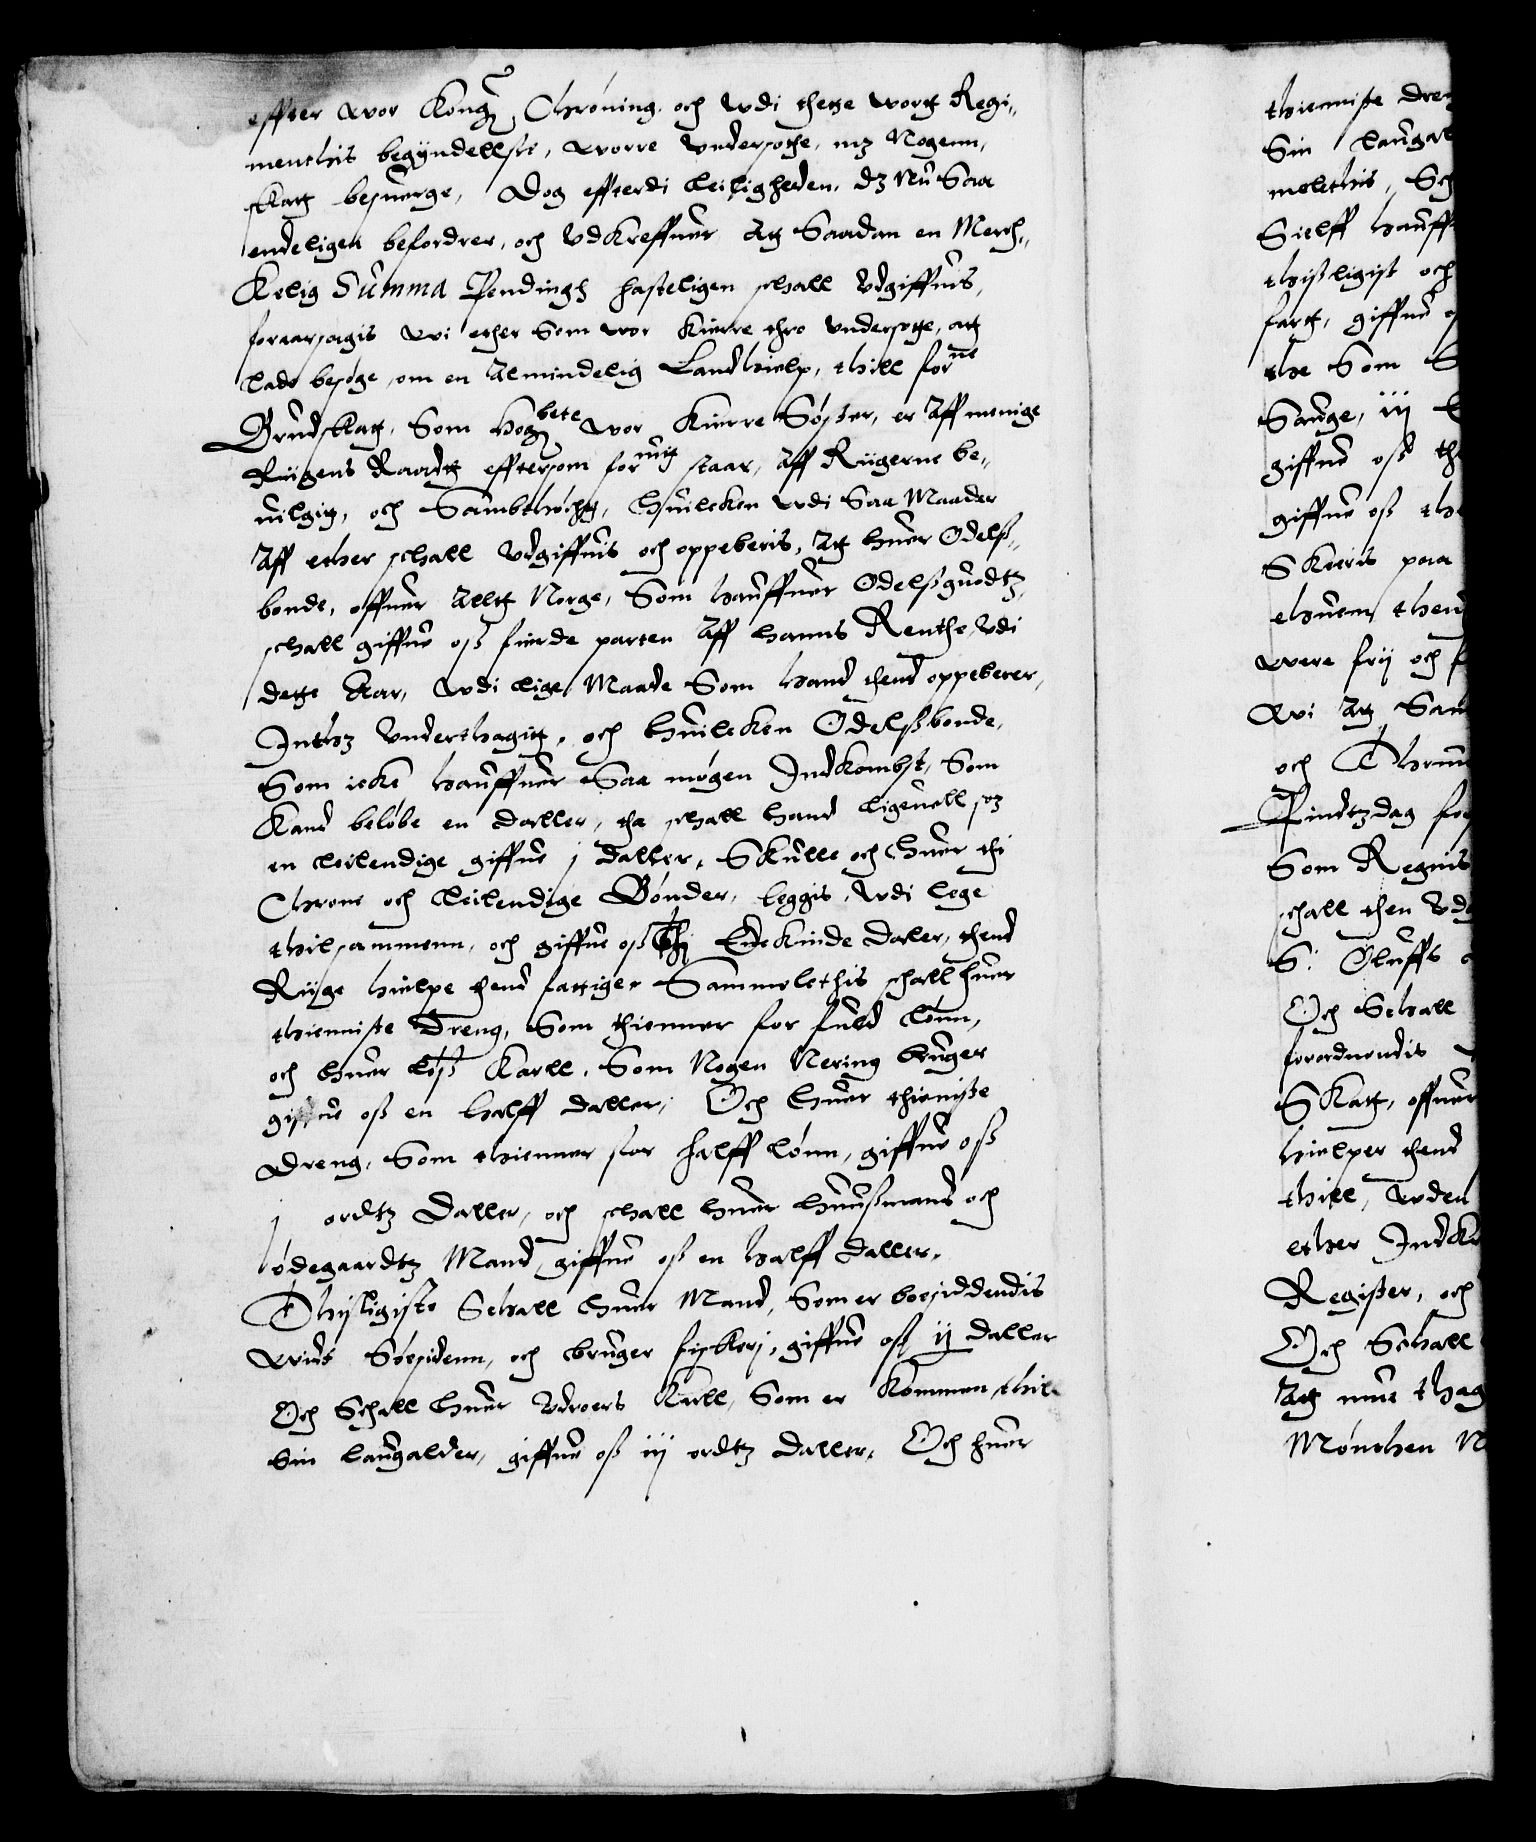 effter wor Kong: Chrøning, och wdi thette wortt Regi„
menthis begÿndellße, worre Undersotthe, mz Nogenn,
skatt besuerge, Dog effterdi Leiligheden, dz Nu Saa
endeligen befordrer, och UdKreffuer Att Saadan en Merch„
Kelig Summa Pendingh hasteligen schall Udgiffuis,
foraarsagis wi ether Som wor Kierre thro Undersotte, att
lade besøge, om en Almindelig Landhielp, thill forne
Brudskatt, Som Høgbete wor Kierre Søster, er Aff menige
Riigens Raadtt efftersom foruitt staar, Aff Riigerne be„
uilgitt, och Sambthÿchtt, Huilcken wdi Saa Maader
Aff ether schall Udgiffuis och oppeberis, Att huer Odelß„
bonde, offuer Alltt Norge, Som hauffuer Odelßguodtz,
schall giffue oß fierde parten Aff hanns Renthe, Udi
dette Aar, wdi lige Maade Som hand thend oppeberer,
Inthz Underthagitt, och Huilcken Odelßbonde,
Som icke hauffuer Saa møgen Indkombst, Som
Kand beløbe en daller, tha schall hand ligeuell soz
en leilendige giffue j daller, Skulle och huer thi
Chrone och Leilendige Bønder, leggis, wdi lege
thilsammenn, och giffue oß thi Enckinde daler, thend
Riige hielpe thend fattige, Sammelethis schall huer
thienniste Dreng, Som thienner for fuld lønn,
och huer løß Karll, Som Nogen Nering bruger
giffue oß en halff daller, Och huer thieniste
Dreng, Som thienner for halff lønn, giffue oß
j ordtz Daller, och schall huer huußmand och
ødegaardtz Mand, giffue oß en halff daller,
Thisligiste Schall huer Mand, Som er boesiddendis
widt Søesidenn, och bruger fiskerj, giffue oß ij daller
Och Schall huer Udroers Karll, Som er Kommen thill
Sin laugalder, giffue oß iij ordtz daller, Och huer
thienniste dreng
Sin laugal
melethis, Sch
Sielff hauff
thißligist och
fartt, giffue o
the Som S
Sauge, iij
giffue oß th
giffue oß the
Skieris paa
ehuem thend
were frij och f
Wi Att Sam
och Thruu
Pindtzdag fo
Som Regnis
schall then Ud
S: Oluffs
Och Schall
forordnendis
Skatt, offuer
hielper thend
thill, uden
ether IndK
Register, och
Och Schall
Att mue thag
Mønthen N